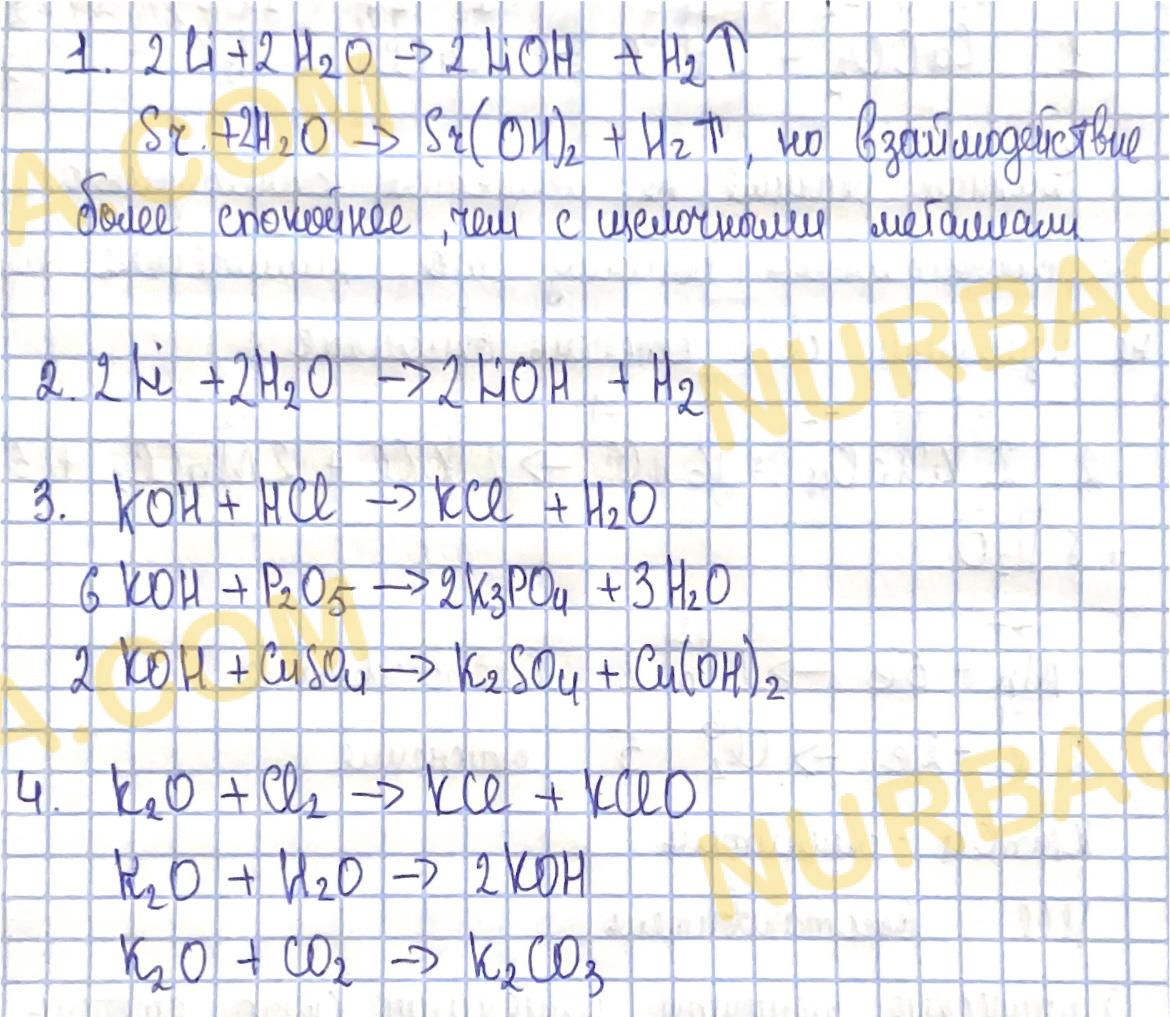 1. 2Li + 2H₂O → 2LiOH + H₂↑
Sr + 2H₂O → Sr(OH)₂ + H₂↑, но взаимодействие
более спокойнее, чем с щелочными металлами.
2. 2Li + 2H₂O → 2LiOH + H₂
3. KOH + HCl → KCl + H₂O
6 KOH + P₂O₅ → 2K₃PO₄ + 3H₂O
2 KOH + CuSO₄ → K₂SO₄ + Cu(OH)₂
4. K₂O + Cl₂ → KCl + KClO
K₂O + H₂O → 2KOH
K₂O + CO₂ → K₂CO₃
A.COM
NURBAC
A.COM
NURBAC